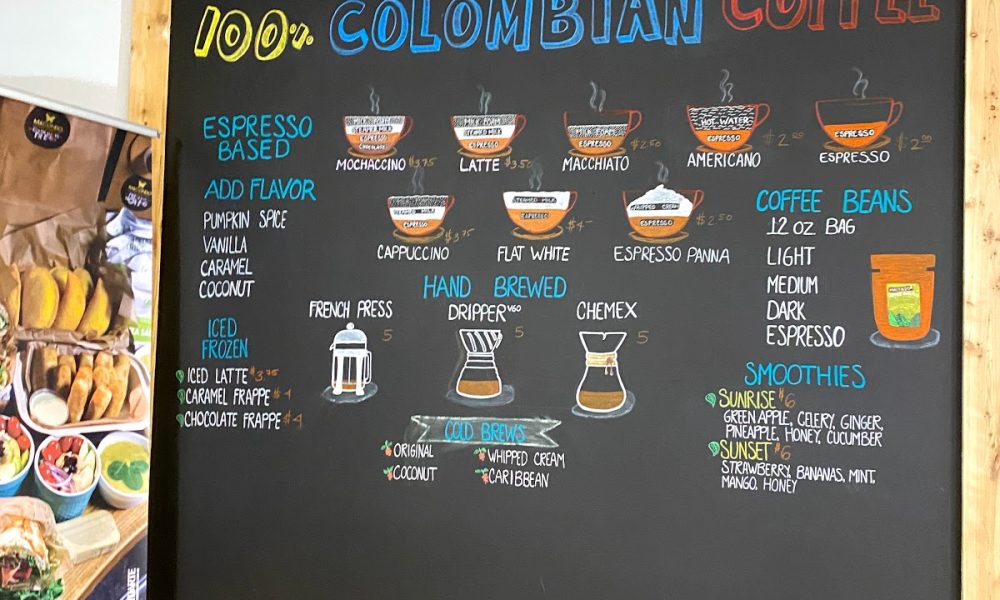 100% COLOMBIAN COFFEE
ESPRESSO
BASED
MILK FOAM
STEAMED MILK
ESPRESSO
CHOCOLATE
MOCHACCINO $3.75
MILK FOAM
STEAMED MILK
ESPRESSO
LATTE $3.50
MILK FOAM
ESPRESSO
MACCHIATO $2.50
HOT WATER
ESPRESSO
AMERICANO $2.00
ESPRESSO
ESPRESSO $2.00
ADD FLAVOR
PUMPKIN SPICE
VANILLA
CARAMEL
COCONUT
STEAMED MILK
ESPRESSO
CAPPUCCINO $3.75
STEAMED MILK
ESPRESSO
FLAT WHITE $4-
WHIPPED CREAM
ESPRESSO
ESPRESSO PANNA $2.50
COFFEE BEANS
12 OZ BAG
LIGHT
MEDIUM
DARK
ESPRESSO
HAND BREWED
FRENCH PRESS 5
DRIPPER V60 5
CHEMEX 5
ICED
FROZEN
ICED LATTE $3.75
CARAMEL FRAPPE $4
CHOCOLATE FRAPPE $4
COLD BREWS
ORIGINAL
WHIPPED CREAM
COCONUT
CARIBBEAN
SMOOTHIES
SUNRISE $6
GREEN APPLE, CELERY, GINGER,
PINEAPPLE, HONEY, CUCUMBER
SUNSET $6
STRAWBERRY, BANANAS, MINT,
MANGO, HONEY